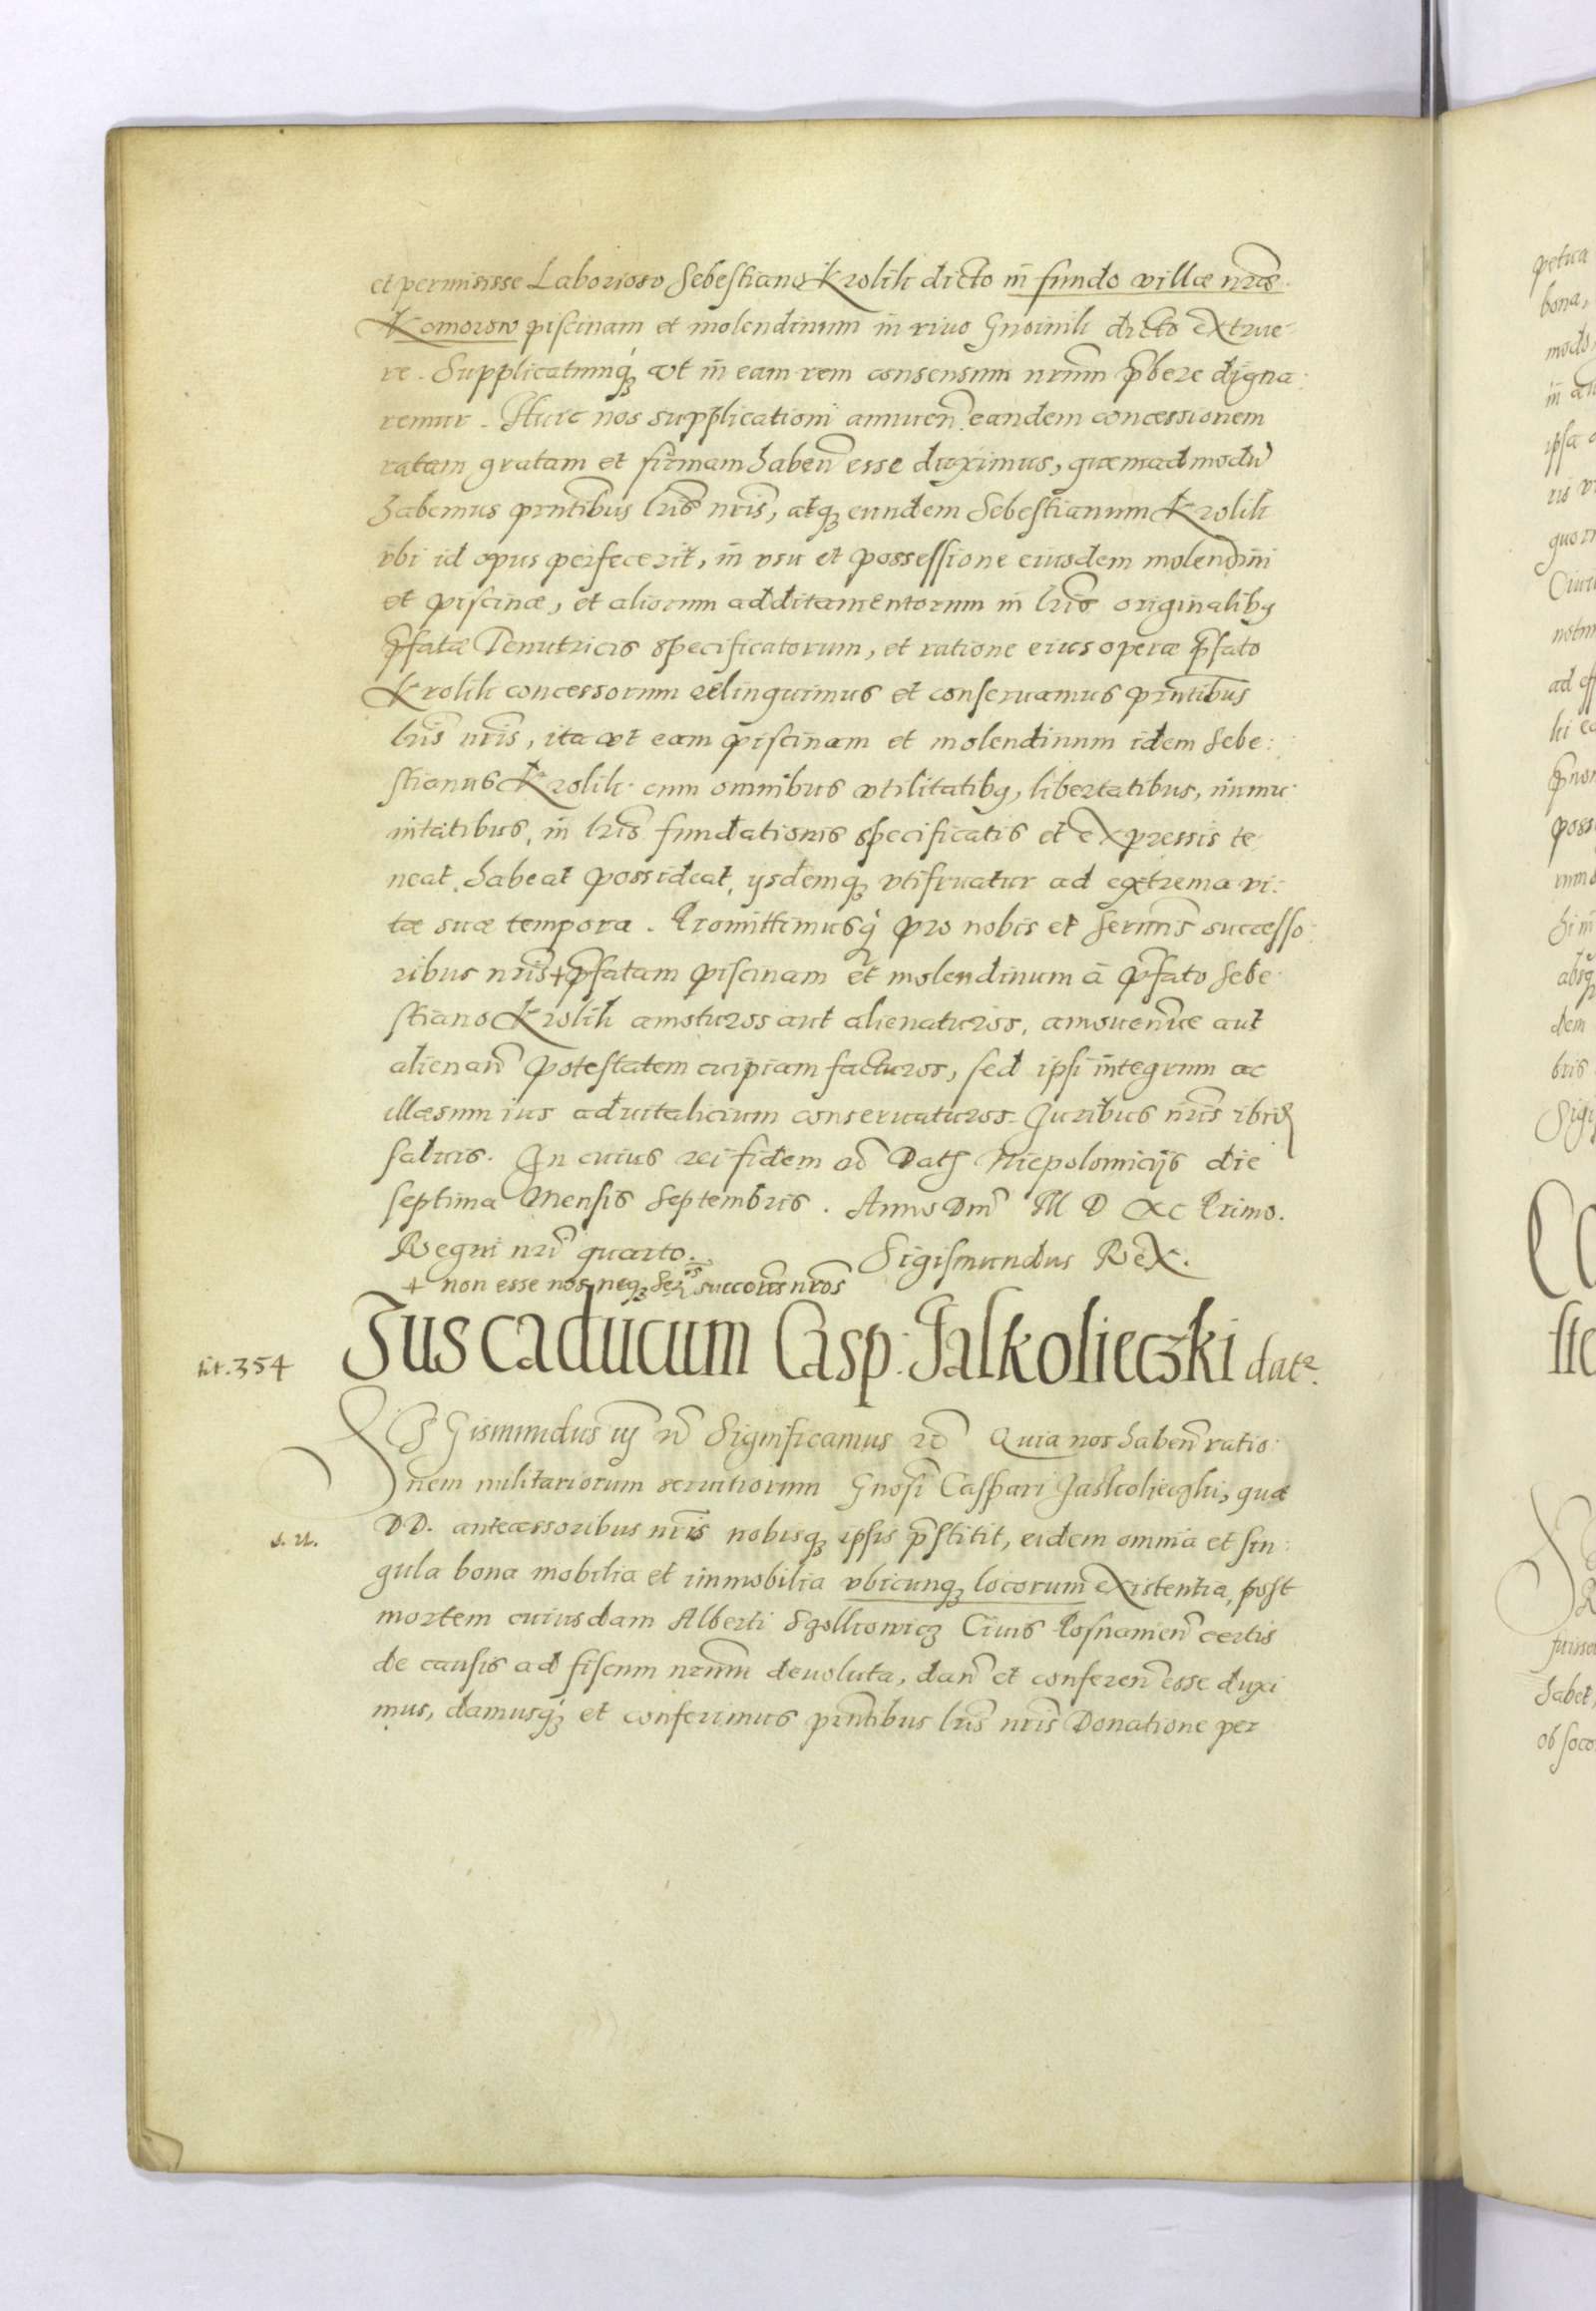 et permisisse Laborioso Sebestiano Krolik dicto in fundo villæ nr̃æ
Komorow piscinam et molendinum in rivo Gnoinik dicto extrue-
re. Supplicatumq́ꝫ ut in eam rem consensum nr̃um p̃bere digna:
remur. Huic nos supplicationi annuen̄ eandem concessionem
ratam gratam et firmam haben̄ esse duximus, quæmadmodū
habemus pr̃ntibus lr̃is nr̃is, atqꝫ eundem Sebestianum Krolik
vbi id opus perfecerit, in vsu et possessione eiusdem molendini
et piscinæ, et aliorum additamentorum in lr̃is originalibꝫ
p̃fatæ Tenutricis specificatorum, et ratione eius operæ p̃fato
Krolik concessorum relinquimus et conservamus pr̃ntibus
lr̃is nr̃is, ita ut eam piscinam et molendinum idem Sebe:
stianus Krolik cum omnibus vtilitatibꝫ, libertatibus, immu-
nitatibus, in lr̃is fundationis specificatis et expressis te
neat habeat possideat, ijsdemqꝫ vtifruatur ad extrema vi:
tæ suæ tempora. Promittimusq́ pro nobis et Serm̃is successo:
ribus nr̃is + p̃fatam piscinam et molendinum à p̃fato Sebe-
stiano Krolik amoturos aut alienaturos, amoven̄ve aut
alienan̄ potestatem cuipiam facturos, sed ipsi integrum ac
illæsum ius advitalicium conservaturos. Juribus nr̃is ibid
salvis. In cuius rei fidem &c̃ Datꝫ Niepolomicijs die
septima Mensis Septembris. Anno Dm̃ M D XC Primo.
Regni nr̃i quarto. Sigismundus Rex.
+ non esse nos neqꝫ Ser succores nr̃os
Jus caducum Casp: Jaskolieczki datr.
lit. 354
Sigismundus iij &c̃ Significamus &c̃ Quia nos haben̄ ratio:
nem militariorum servitiorum Gnosi Caspari Jaskolieczki, quæ
s. n.
DD. antecessoribus nr̃is nobisqꝫ ipsis p̃stitit, eidem omnia et sin:
gula bona mobilia et immobilia vbicunqꝫ locorum existentia, post
mortem cuiusdam Alberti Szolkowicz Civis Posnanien̄ certis
de causis ad fiscum nr̃um devoluta, dan̄ et conferen̄ esse duxi
mus, damusq́ꝫ et conferimus pr̃ntibus lr̃is nr̃is Donatione per